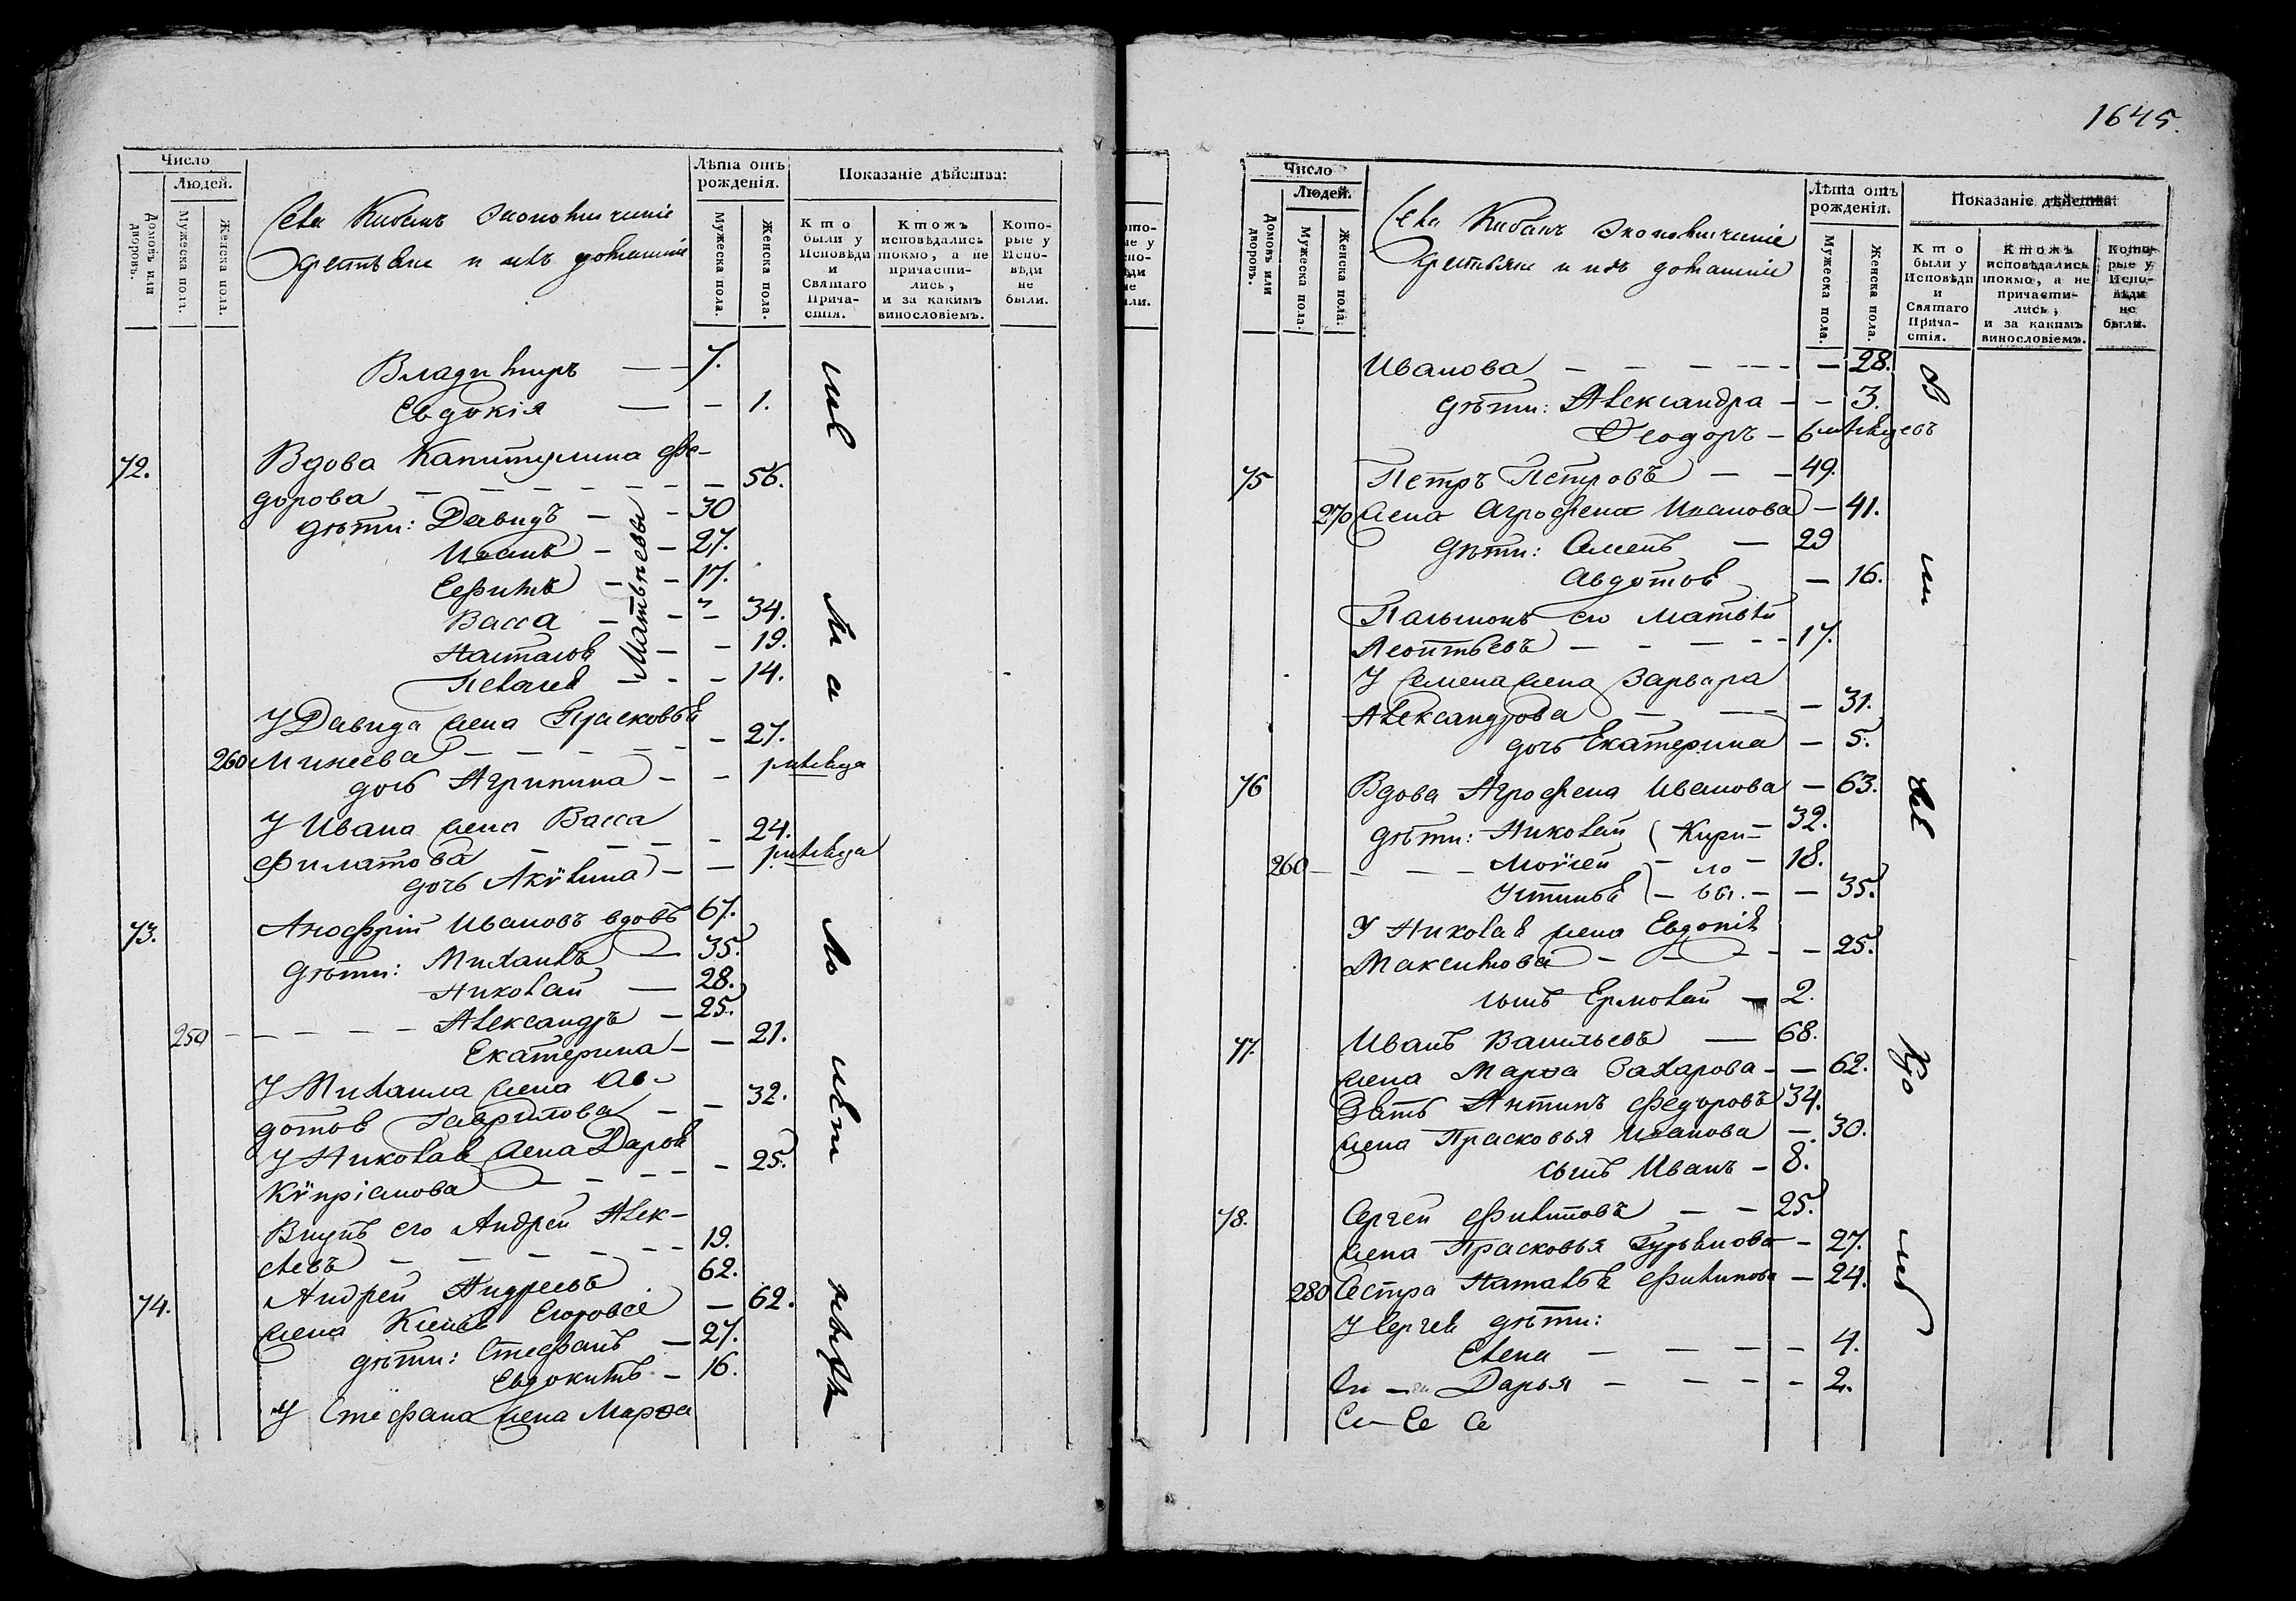 Число
Людей.
Домовъ или дворовъ.
Мужеска пола.
Женска пола.
Села Кибанъ экономическіе
крестьяне и ихъ домашніе
Лѣта отъ рожденія.
Мужеска пола.
Женска пола.
Показаніе дѣйства:
Кто были у Исповѣди и Святаго Причастія.
Ктожъ исповѣдались токмо, а не причастились, и за какимъ винословіемъ.
Которые у Исповѣди не были.
Владимиръ — — 7.
Евдокія — — 1.
72. Вдова Капитулина Фе-
дорова — — — — — — 56.
дѣти: Давидъ — — 30
Иванъ — — 27.
Ефимъ — — 17.
Васса — — — 34.
Настасья — — 19.
Пелагея — — — 14.
Матвѣевы
У Давида жена Прасковья
260 Минеева — — — — — 27.
дочь Агрипина — — 1 мѣсяца
У Ивана жена Васса
Филатова — — — — 24.
дочь Акулина — — 1 мѣсяца
73. Аноффрій Ивановъ вдовъ 67.
дѣти: Михаилъ — 35.
Николай — 28.
250 — — — — Александръ — 25.
Екатерина — — 21.
У Михаила жена Ав-
дотья Гаврилова — — 32.
У Николая жена Дарья
Кипріанова — — — — 25.
Внукъ его Андрей Алек-
сѣевъ — — — — — — 19.
74. Андрей Андреевъ 62.
жена Ксенія Егорова — 62.
дѣти: Стефанъ — 27.
Евдокимъ — 16.
У Стефана жена Марѳа
1645.
Число
Людей.
Домовъ или дворовъ.
Мужеска пола.
Женска пола.
Села Кибанъ экономическіе
крестьяне и ихъ домашніе
Лѣта отъ рожденія.
Мужеска пола.
Женска пола.
Показаніе дѣйства:
Кто были у Исповѣди и Святаго Причастія.
Ктожъ исповѣдались токмо, а не причастились, и за какимъ винословіемъ.
Которые у Исповѣди не были.
Иванова — — — — — — 28.
дѣти: Александра — — 3.
Ѳеодоръ — 6 мѣсяцевъ
75 Петръ Петровъ — — 49.
270 жена Агрофена Иванова — 41.
Дѣти: Семенъ — 29
Авдотья — 16.
Пасынокъ его Матвѣй
Леонтьевъ — — — — — 17.
У Семена жена Варвара
Александрова — — — — 31.
дочь Екатерина — 5.
76 Вдова Агрофена Иванова — 63.
дѣти: Николай (Кири- 32.
260 — — — — Моѵсей — ло — 18.
Устинья — вы. — — 35.
У Николая жена Евдокія
Максимова — — — — — 25.
сынъ Ермолай — 2.
77. Иванъ Васильевъ — 68.
жена Марѳа Захарова — — 62.
Зять Антипъ Федоровъ 34.
жена Прасковья Иванова — 30.
сынъ Иванъ — 8.
78. Сергей Филиповъ — — 25.
жена Прасковья Гурьянова — 27.
280 Сестра Наталья Филипова — 24.
У Сергея дѣти:
Елена — — — — 4.
Дарья — — — — 2.
Се Се